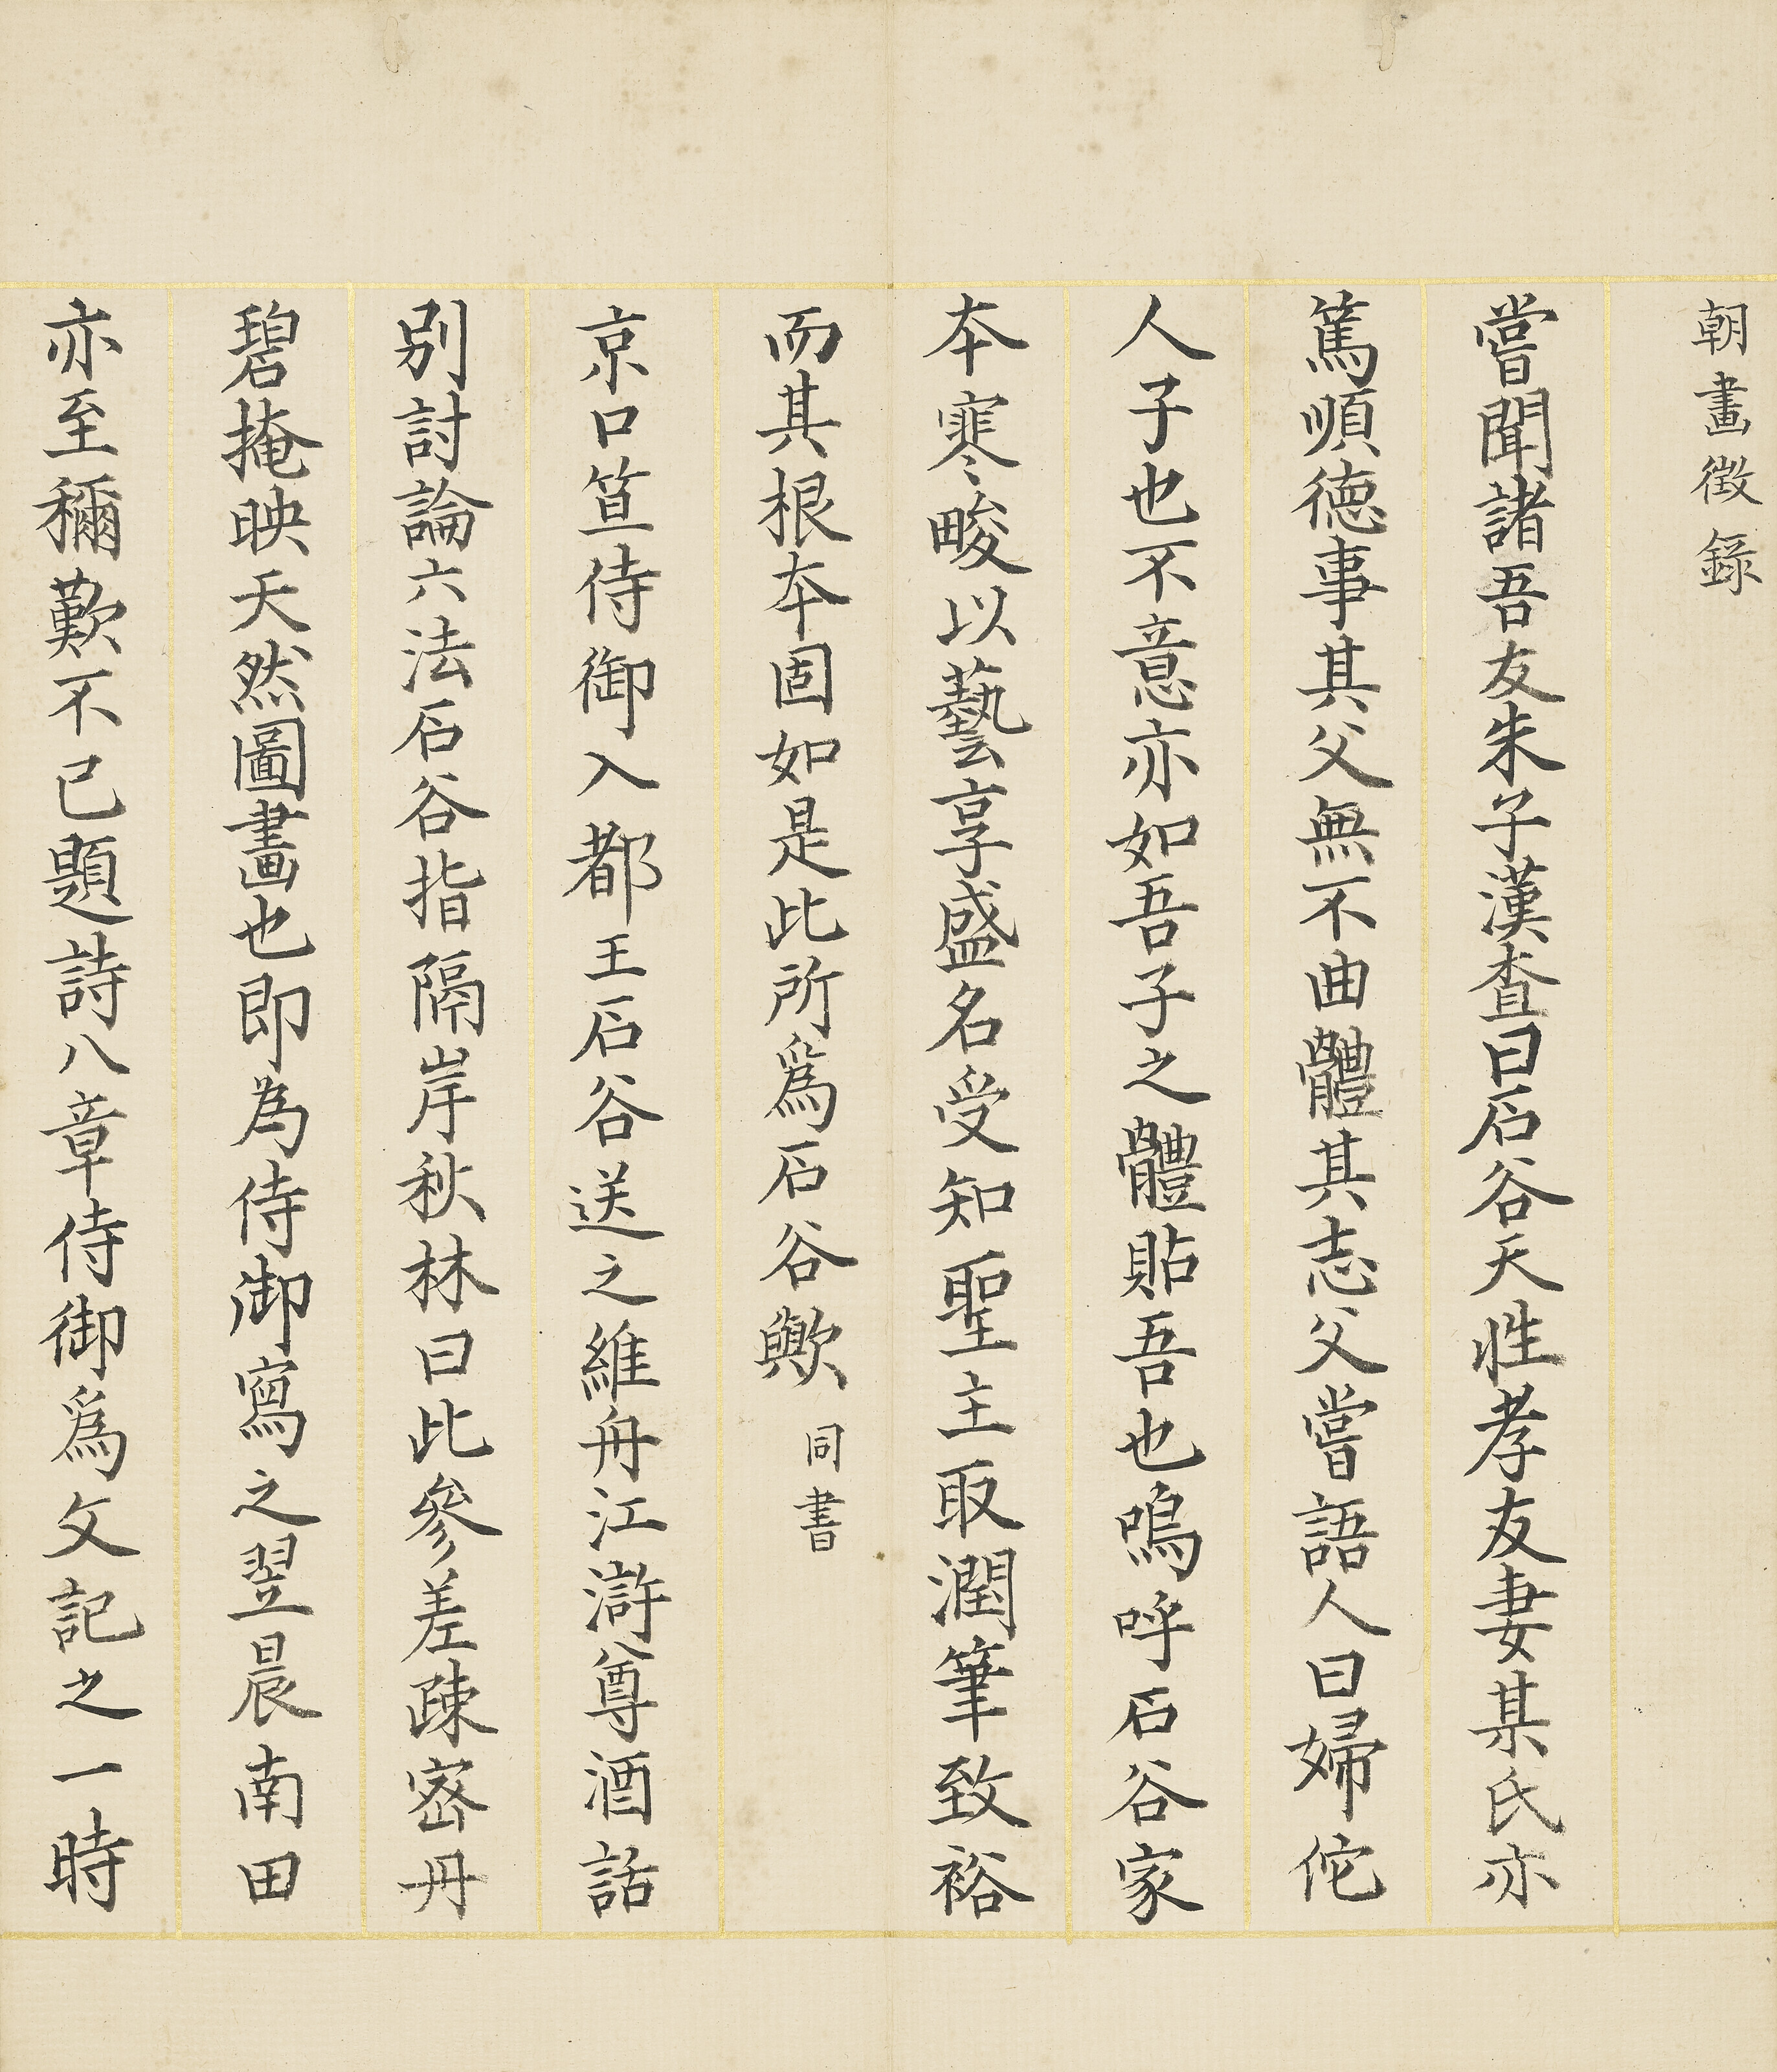 朝畫徵錄
嘗聞諸吾友朱子漢查曰石谷天性孝友妻某氏亦
篤順德事其父無不曲體其志父嘗語人曰婦佗
人子也不意亦如吾子之體貼吾也嗚呼石谷家
本寒畯以藝享盛名受知聖主取潤筆致裕
而其根本固如是此所爲石谷歟 同書
京口笪侍御入都王石谷送之維舟江滸尊酒話
別討論六法石谷指隔岸秋林曰此參差疎密丹
碧掩映天然圖畫也即為侍御寫之翌晨南田
亦至稱歎不已題詩八章侍御爲文記之一時